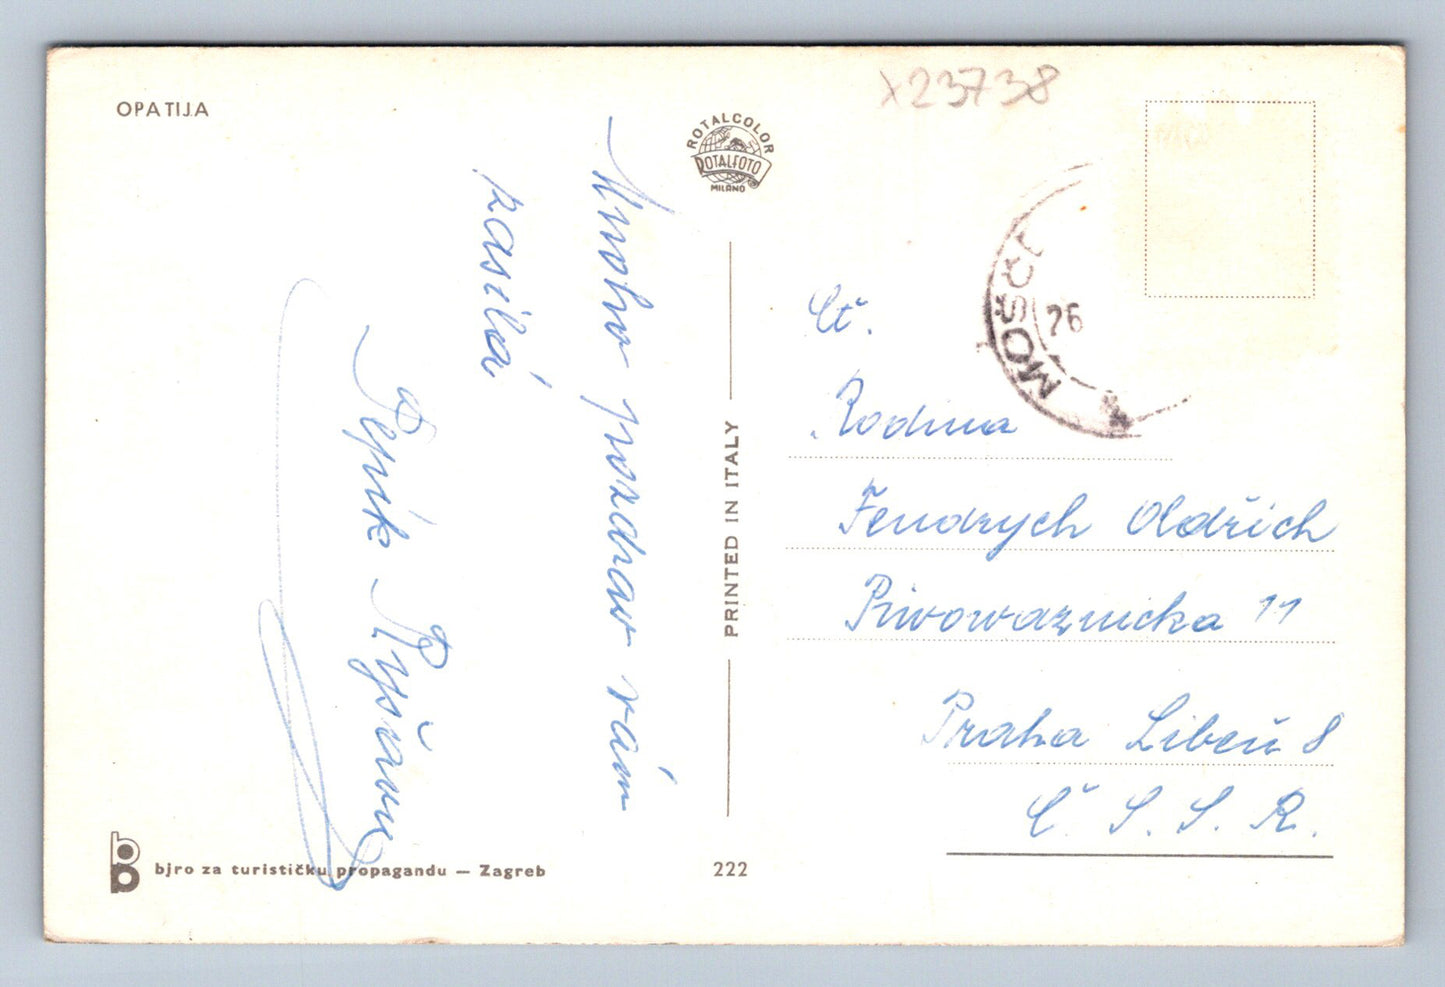 OPATIJA
x23738
ROTALCOLOR
ROTALFOTO
MILANO
MOŠĆ
26
Mnoho pozdrav vám
zasílá
Pepík
PRINTED IN ITALY
Ct.
Rodina
Fendrych Oldřich
Praha Libeň 8
Č. S. S. R.
bjro za turističku propagandu — Zagreb
222